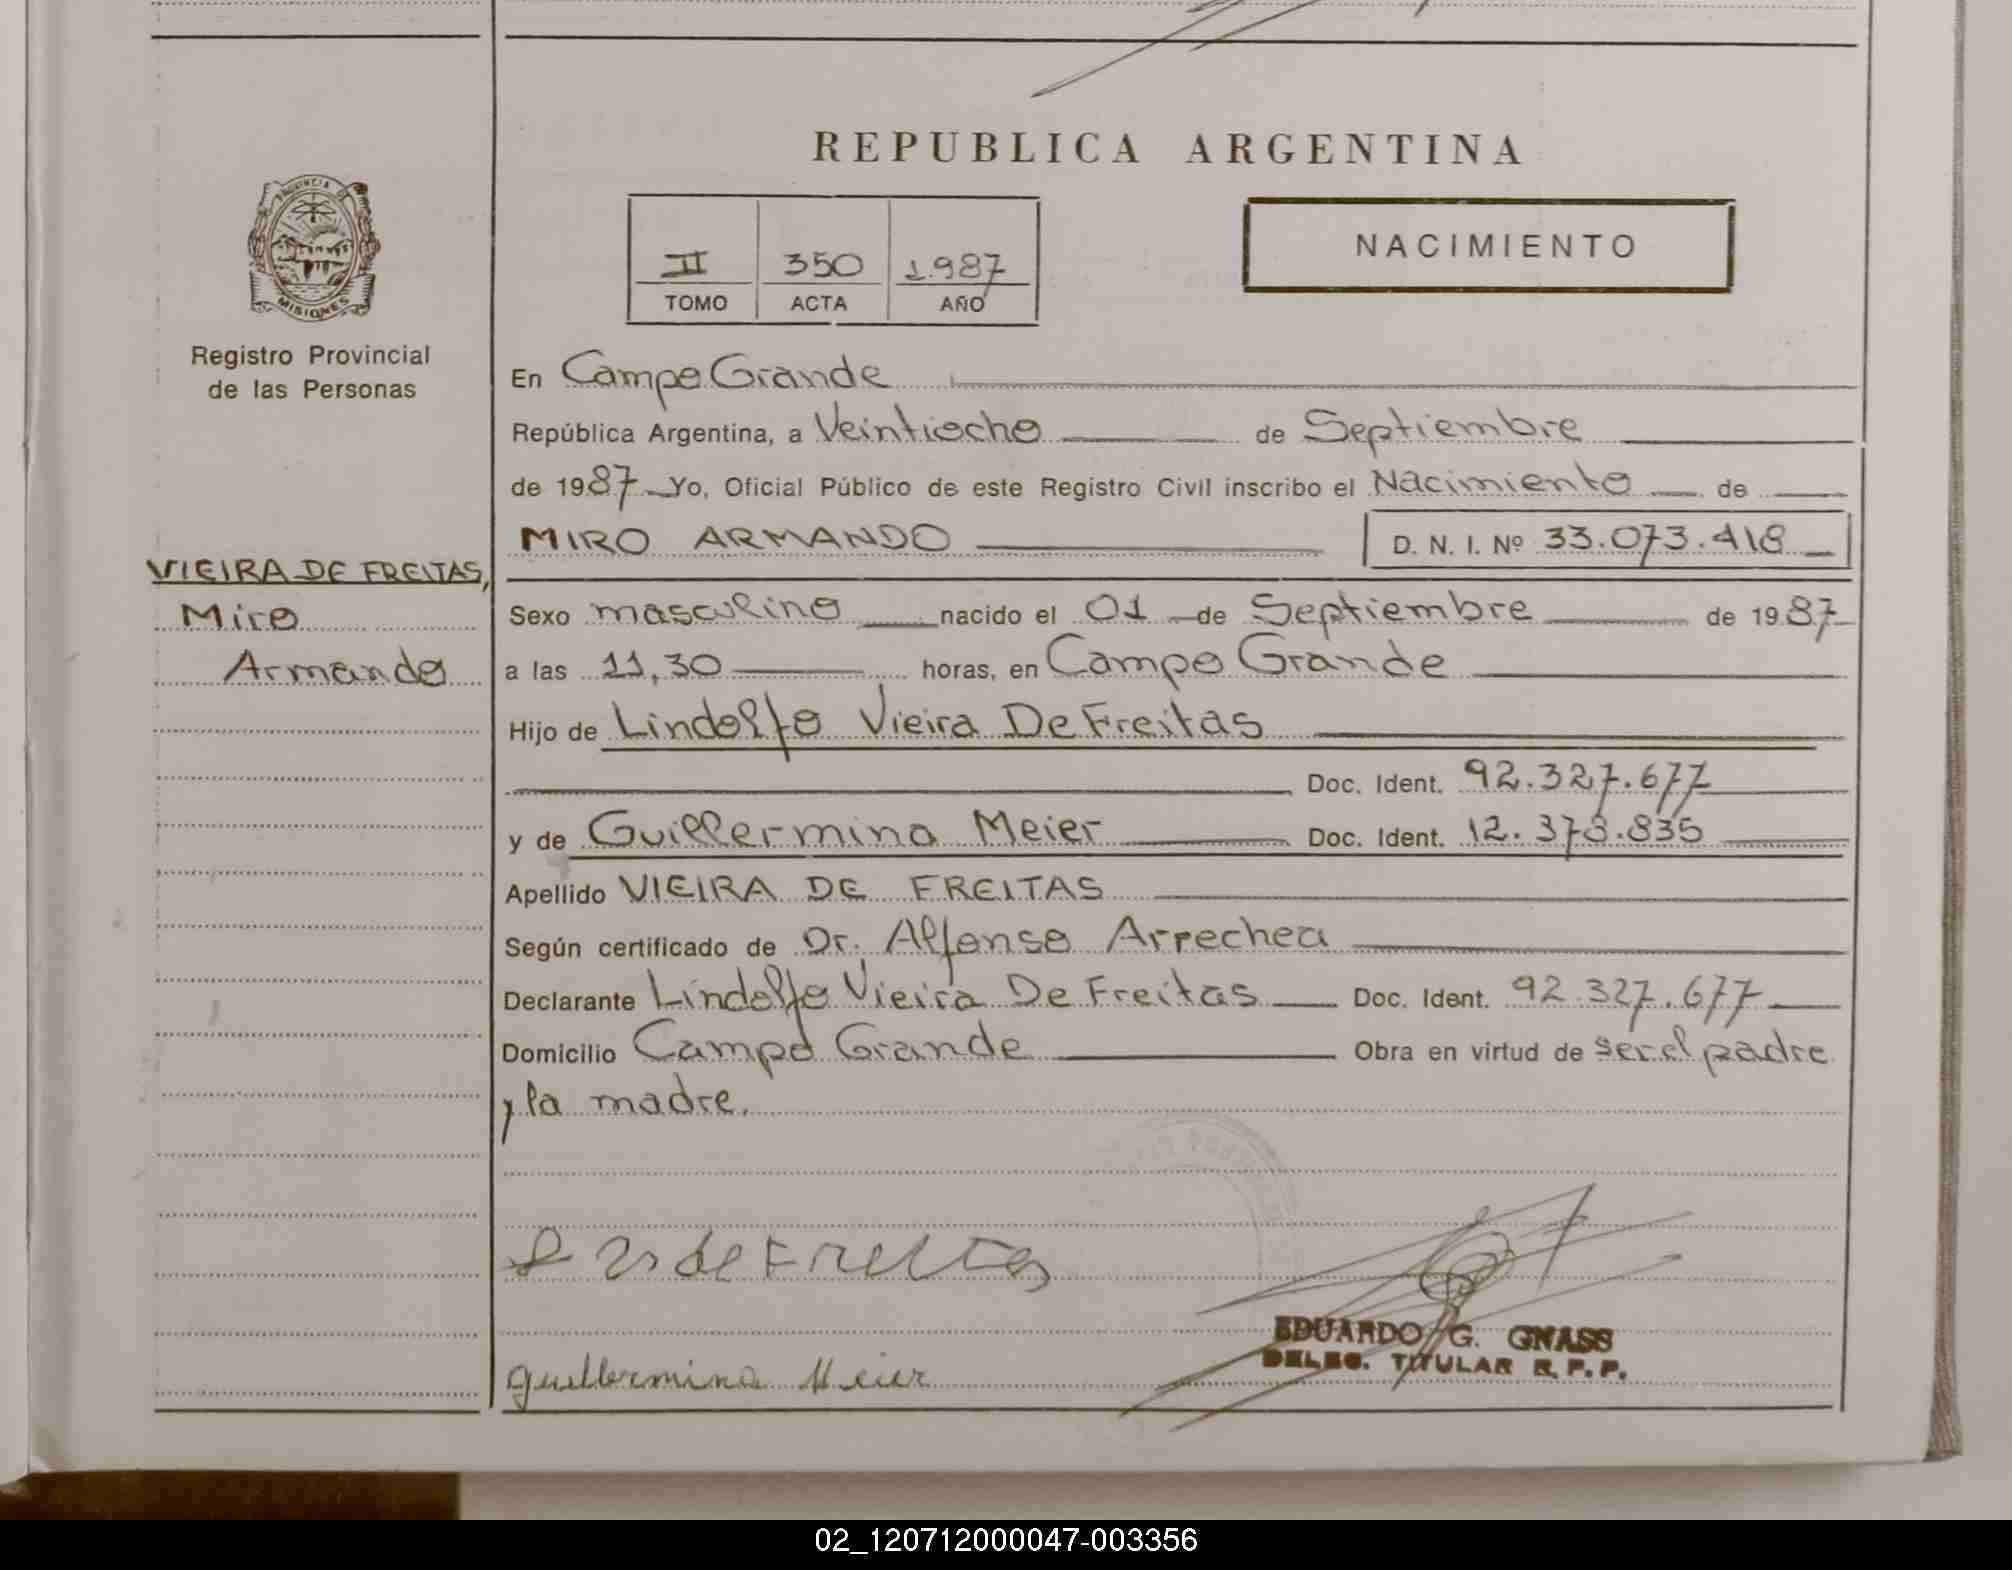 REPUBLICA ARGENTINA
PROVINCIA DE
MISIONES
Registro Provincial
de las Personas
II 350 1.987
TOMO ACTA AÑO
NACIMIENTO
En Campo Grande
República Argentina, a Veintiocho de Septiembre
de 1987 Yo, Oficial Público de este Registro Civil inscribo el Nacimiento de
MIRO ARMANDO D. N. I. Nº 33.073.418
VIEIRA DE FREITAS,
Miro
Armando
Sexo masculino nacido el 01 de Septiembre de 1987
a las 11,30 horas, en Campo Grande
Hijo de Lindolfo Vieira De Freitas
Doc. Ident. 92.327.677
y de Guillermina Meier Doc. Ident. 12.378.835
Apellido VIEIRA DE FREITAS
Según certificado de Dr. Alfonso Arrechea
Declarante Lindolfo Vieira De Freitas Doc. Ident. 92.327.677
Domicilio Campo Grande Obra en virtud de ser el padre
y la madre.
de Freitas
EDUARDO G. GNASS
DELEG. TITULAR R.P.P.
guillermina Meier
02_120712000047-003356